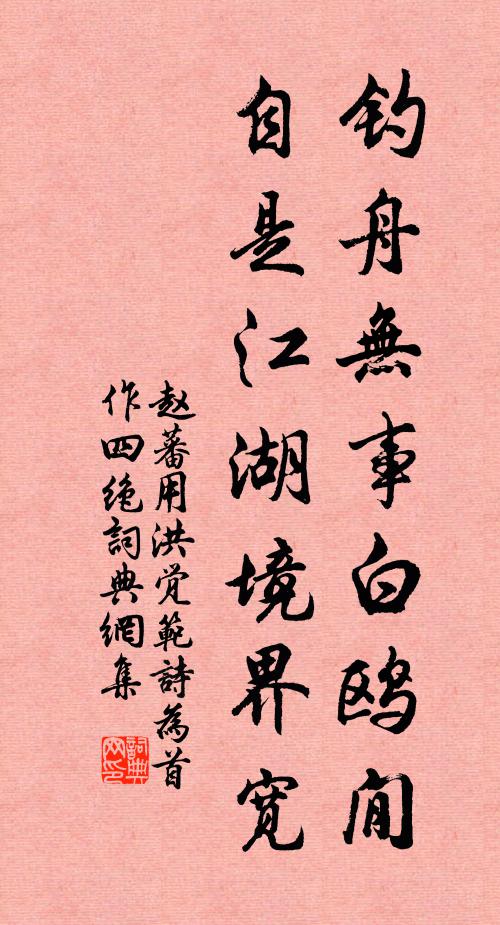 钓舟無事白鸥閒
自是江湖境界寬
赵蕃用洪觉範詩為首
作四绝詞典網集
詞典网印